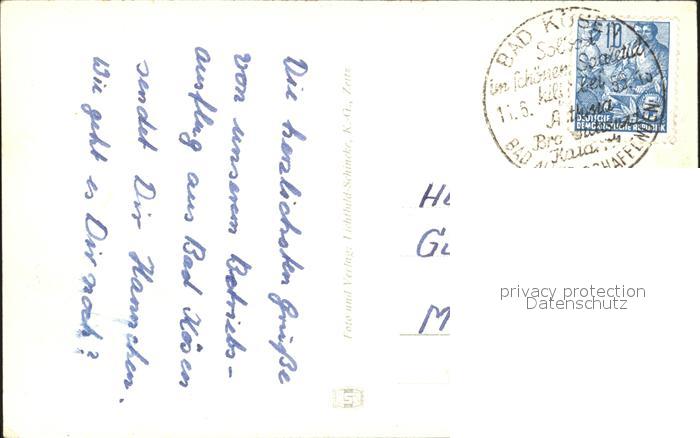 Die herzlichsten Grüße
von unserem Betriebs-
ausflug aus Bad Kösen
sendet Dir Hannchen.
Wie geht es Dir noch?
Foto und Verlag: Lichtbild-Schincke, K.-G., Zeitz
BAD KÖSEN
Solbad
im schönen Saaletal
hilft bei
11.6.
Asthma
Kata
BAD
10
DEUTSCHE
DEMOKRATISCHE REPUBLIK
H
G
M
privacy protection
Datenschutz